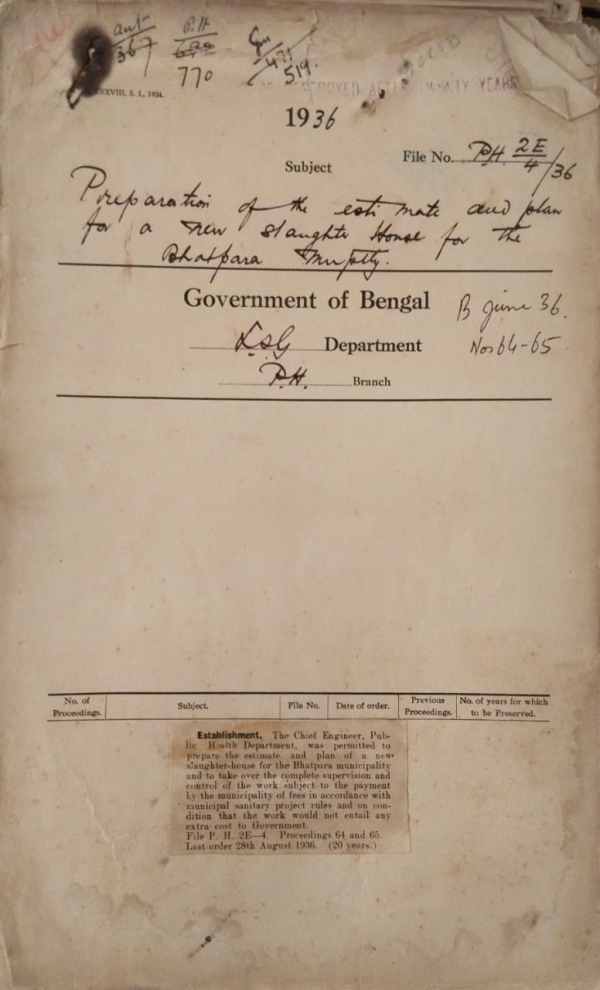 367
P.H
770
471
519.
XXVIII, S. I., 1934.
DESTROYED AFTER TWENTY YEARS
1936
File No. P.H 2E/4/36
Subject
Preparation of the estimate and plan
for a new slaughter House for the
Bhatpara Muplty.
Government of Bengal
B June 36.
L.S.G Department
Nos 64-65
P.H. Branch
No. of Proceedings. Subject. File No. Date of order. Previous Proceedings. No. of years for which to be Preserved.
Establishment. The Chief Engineer, Pub-
lic Health Department, was permitted to
prepare the estimate and plan of a new
slaughter-house for the Bhatpara municipality
and to take over the complete supervision and
control of the work subject to the payment
by the municipality of fees in accordance with
municipal sanitary project rules and on con-
dition that the work would not entail any
extra cost to Government.
File P. H. 2E—4. Proceedings 64 and 65.
Last order 28th August 1936. (20 years.)